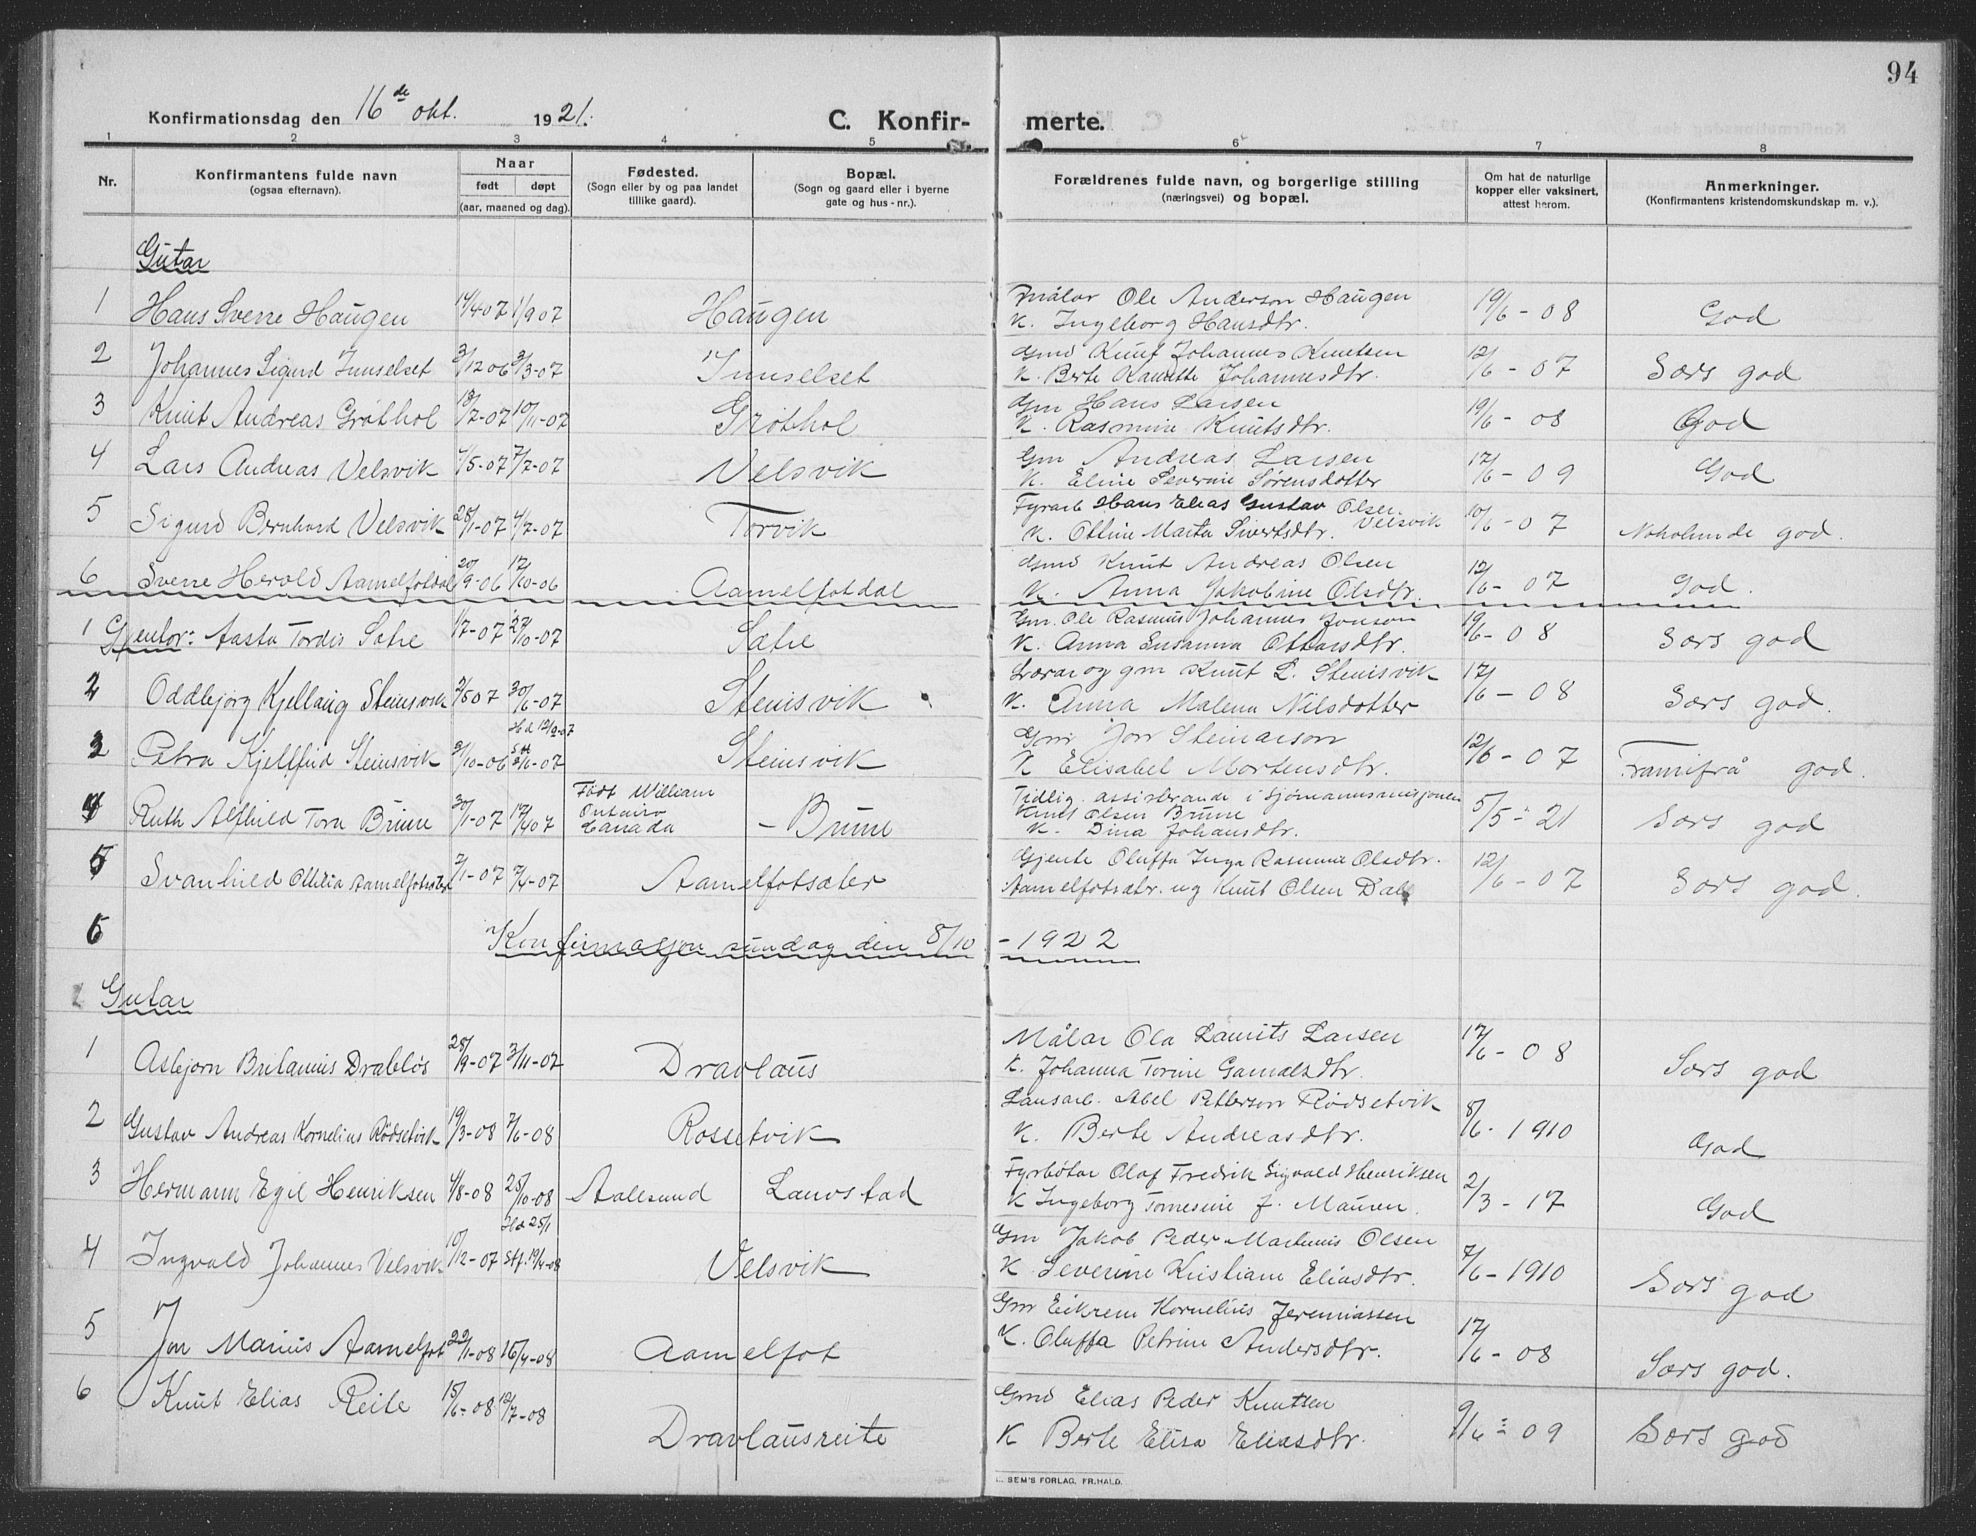 94
Konfirmationsdag den 16de okt. 1921.
C. Konfir- merte.
1 2 3 4 5 6 7 8
Nr.
Konfirmantens fulde navn
(ogsaa efternavn).
Naar
født døpt
(aar, maaned og dag).
Fødested.
(Sogn eller by og paa landet
tillike gaard).
Bopæl.
(Sogn og gaard eller i byerne
gate og hus-nr.).
Forældrenes fulde navn, og borgerlige stilling
(næringsvei) og bopæl.
Om hat de naturlige
kopper eller vaksinert,
attest herom.
Anmerkninger.
(Konfirmantens kristendomskundskap m. v.).
Gutar
1 Hans Sverre Haugen 14/4 07 1/9 07 Haugen Målar Ole Anderson Haugen 19/6 - 08 God
K. Ingeborg Hansdtr.
2 Johannes Sigurd Innselset 3/12 06 3/3-07 Innselset Gmd Knut Johannes Knutsen 12/6 - 07 Særs god
K. Berte Kanutte Johannesdtr.
3 Knut Andreas Grøthol 18/7-07 10/11-07 Grøthol Gm Hans Larsen 19/6 - 08 God
K. Rasmine Knutsdtr.
4 Lars Andreas Velsvik 4/5-07 7/7-07 Velsvik Gm Andreas Larsen 17/6 - 09 God
K. Eline Severine Sørensdotter
5 Sigurd Bernhard Velsvik 28/1-07 4/7-07 Torvik Fyrarb Hans Elias Gustav Olsen Velsvik 10/6 - 07 Nokolunde god.
K. Ottine Marta Sivertsdtr.
6 Sverre Herold Aamelfotdal 20/9-06 12/10-06 Aamelfotdal Gmd Knut Andreas Olsen 12/6 - 07 God.
K. Anna Jakobine Olsdtr.
1 Gjentor: Aasta Tordis Sætre 1/7-07 27/10-07 Sætre Gm. Ole Rasmus Johannes Jonson 19/6 - 08 Særs god
K. Anna Susanna Ottarsdtr.
2 Oddbjørg Kjellaug Steinsvik 2/5 07 30/6-07 Steinsvik Lærar og gm Knut L. Steinsvik 17/6 - 08 Særs god.
K. Anna Malena Nilsdotter
3 Petra Kjellfrid Steinsvik 9/10-06 Hd 12/2-07 Steinsvik Gm Jon Steinarson 12/6 - 07 Framifrå god.
K Elisabet Mortensdtr.
4 Ruth Alfhild Tora Brune 30/1-07 17/4 07 Født William Ontairo Canada - Brune Tidlig. assisterande i Sjømannsmisjonen 5/5 - 21 Særs god
Knut Olsen Brune
K. Dina Johansdtr.
5 Svanhild Ottilia Aamelfotsæter 7/1-07 7/4-07 Aamelfotsæter Gjente Oluffa Inga Rasmine Olsdtr. 12/6 - 07 Særs god.
Aamelfotsætr. og Knut Olsen Dale
6
Konfirmasjon sundag den 8/10 - 1922
Gutar
1 Asbjørn Britanius Drabløs 28/9-07 3/11-07 Dravlaus Målar Ola Laurits Larsen 17/6 - 08 Særs god
K. Johanna Torine Gamalsdtr.
2 Gustav Andreas Kornelius Rödsetvik 19/3-08 7/6-08 Rossetvik Lausarb. Abel Petterson Rødsetvik 8/6 - 1910 God
K. Berte Andreasdtr.
3 Hermann Egil Henriksen 4/8-08 25/10-08 Aalesund Lauvstad Fyrbøtar Olaf Fredrik Sigvald Henriksen 2/3 - 17 God
K Ingeborg Tomesine f. Mauren.
4 Ingvald Johannes Velsvik 10/12-07 Hd 25/1 Stf. 19/4-08 Velsvik Gm Jakob Peder Martinus Olsen 7/6 - 1910 Særs god
K Severine Kristiane Eliasdtr.
5 Jon Marius Aamelfot 22/1-08 16/4-08 Aamelfot Gm Eikrem Kornelius Jeremiassen 17/6 - 08 Særs god.
K. Oluffa Petrine Andersdtr.
6 Knut Elias Reite 15/6-08 12/7-08 Dravlausreite Gmd Elias Peder Knutsen 9/6 - 09 Særs god
K Berte Elisa Eliasdtr.
SEM'S FORLAG, FR.HALD.